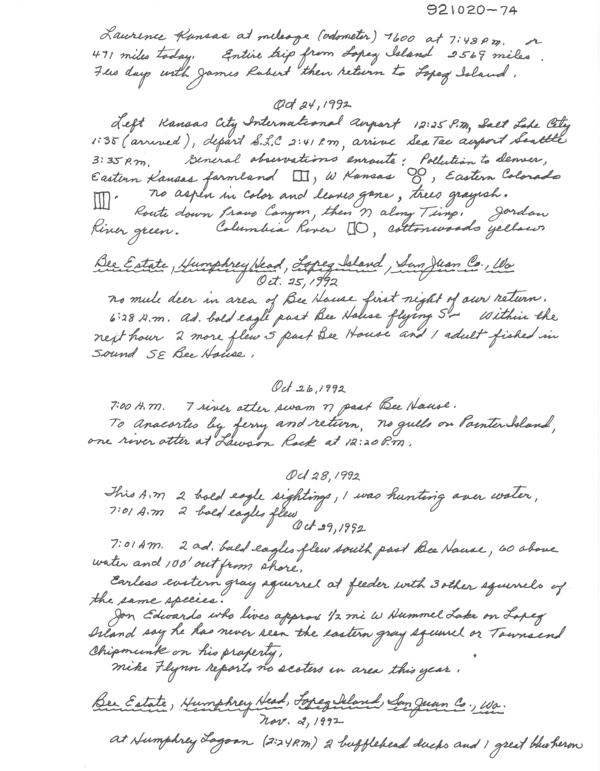 921020-74
Lawrence Kansas at mileage (odometer) 7600 at 7:48 P.m. or
471 miles today. Entire trip from Lopez Island 2569 miles.
Few days with James Robert then return to Lopez Island.
Oct 24, 1992
Left Kansas City International airport 12:25 P.M, Salt Lake City
1:35 (arrived), depart S.L.C 2:41 P.m, arrive SeaTac airport Seattle
3:35 P.M. General observations enroute: Pollution to Denver,
Eastern Kansas farmland , W Kansas , Eastern Colorado
. no aspen in color and leaves gone, trees grayish.
Route down Provo Canyon, then N along Timp. Jordan
River green. Columbia River , cottonwoods yellow
Bee Estate, Humphrey Head, Lopez Island, San Juan Co., Wa
Oct. 25, 1992
no mule deer in area of Bee House first night of our return.
6:28 A.m. Ad. bald eagle past Bee House flying S- Within the
next hour 2 more flew S past Bee House and 1 adult fished in
Sound SE Bee House.
Oct 26, 1992
7:00 A.M. 7 river otter swam N past Bee House.
To Anacortes by ferry and return, no gulls on Pointer Island,
one river otter at Lawson Rock at 12:20 P.m.
Oct 28, 1992
This A.m 2 bald eagle sightings, 1 was hunting over water,
7:01 A.m 2 bald eagles flew
Oct 29, 1992
7:01 Am. 2 ad. bald eagles flew south past Bee House, 60 above
water and 100' out from shore.
Earless eastern gray squirrel at feeder with 3 other squirrels of
the same species.
Jon Edwards who lives approx 1/2 mi W Hummel Lake on Lopez
Island say he has never seen the eastern gray squirrel or Townsend
Chipmunk on his property.
Mike Flynn reports no scoters in area this year.
Bee Estate, Humphrey Head, Lopez Island, San Juan Co., Wa.
Nov. 2, 1992
At Humphrey Lagoon (2:24 P.M) 2 bufflehead ducks and 1 great blue heron